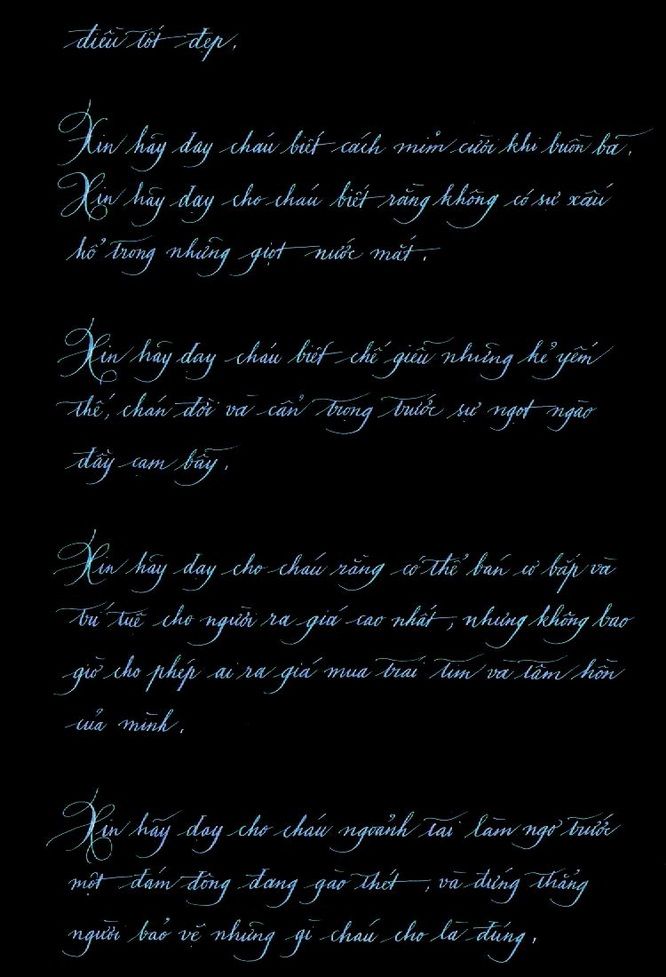 điều tốt đẹp.
Xin hãy dạy cháu biết cách mỉm cười khi buồn bã.
Xin hãy dạy cho cháu biết rằng không có sự xấu
hổ trong những giọt nước mắt.
Xin hãy dạy cháu biết chế giễu những kẻ yếm
thế, chán đời và cẩn trọng trước sự ngọt ngào
đầy cạm bẫy.
Xin hãy dạy cho cháu rằng có thể bán cơ bắp và
trí tuệ cho người ra giá cao nhất, nhưng không bao
giờ cho phép ai ra giá mua trái tim và tâm hồn
của mình.
Xin hãy dạy cho cháu ngoảnh tai làm ngơ trước
một đám đông đang gào thét, và đứng thẳng
người bảo vệ những gì cháu cho là đúng.